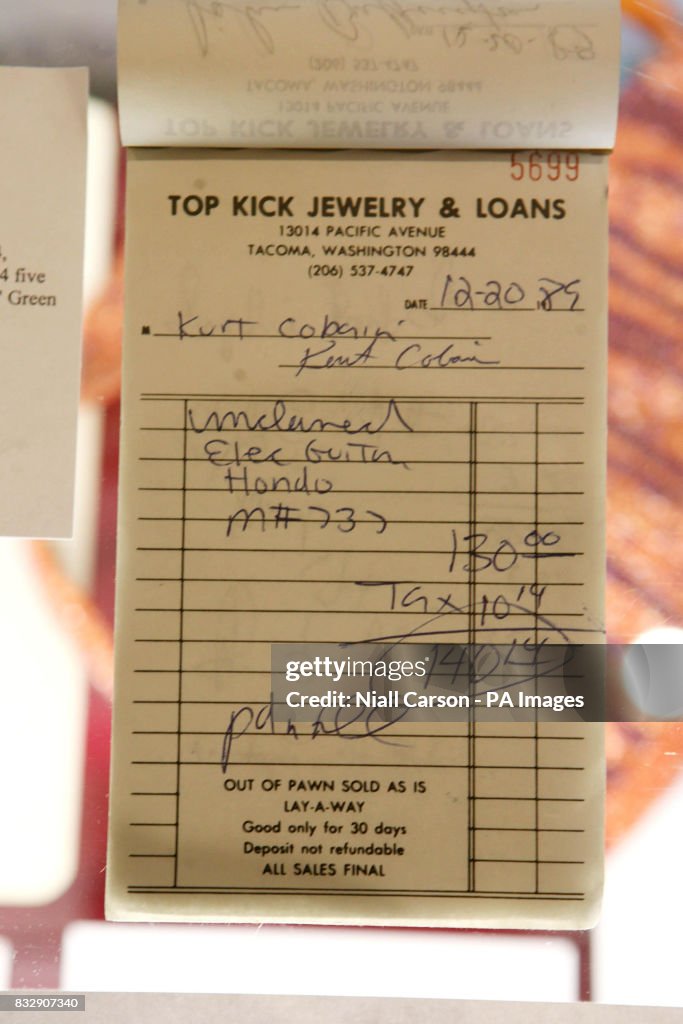 (206) 537-4747
TACOMA, WASHINGTON 98444
13014 PACIFIC AVENUE
TOP KICK JEWELRY & LOANS
12-20-89
5699
TOP KICK JEWELRY & LOANS
13014 PACIFIC AVENUE
TACOMA, WASHINGTON 98444
(206) 537-4747
4 five
Green
DATE 12-20 1989
M Kurt Cobain
Kurt Cobain
unclaimed
Elec Guitar
Hondo
M# 737
130.00
Tax 10.14
140.14
gettyimages®
Niall Carson - PA Images
OUT OF PAWN SOLD AS IS
LAY-A-WAY
Good only for 30 days
Deposit not refundable
ALL SALES FINAL
832907340